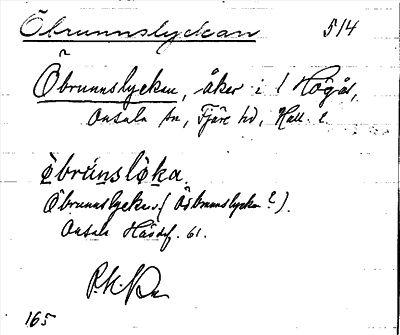 Öbrunnslyckan 514
Öbrunnslyckan, åker i 1 Högås,
Onsala sn, Fjäre hd, Hall. l.
ö̀bruǹslö̀ka.
Öbrunnslyckan (Ösbrunnslyckan?).
Onsala Hässef. 61.
165